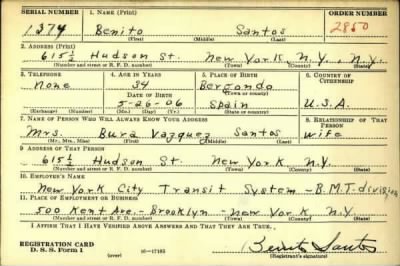 SERIAL NUMBER 1. NAME (Print) ORDER NUMBER
1374 Benito Santos 2850
(First) (Middle) (Last)
2. ADDRESS (Print)
615½ Hudson St. New York N.Y., N.Y.
(Number and street or R. F. D. number) (Town) (County) (State)
3. TELEPHONE 4. AGE IN YEARS 5. PLACE OF BIRTH 6. COUNTRY OF CITIZENSHIP
None 34 Bergondo
DATE OF BIRTH (Town or county)
5-26-06 Spain U.S.A.
(Exchange) (Number) (Mo.) (Day) (Yr.) (State or country)
7. NAME OF PERSON WHO WILL ALWAYS KNOW YOUR ADDRESS 8. RELATIONSHIP OF THAT PERSON
Mrs. Vazquez Santos wife
(Mr., Mrs., Miss) (First) (Middle) (Last)
9. ADDRESS OF THAT PERSON
615½ Hudson St. New York N.Y.
(Number and street or R. F. D. number) (Town) (County) (State)
10. EMPLOYER'S NAME
New York City Transit System - B.M.T. division
11. PLACE OF EMPLOYMENT OR BUSINESS
500 Kent Ave. - Brooklyn - New York N.Y
(Number and street or R. F. D. number) (Town) (County) (State)
I AFFIRM THAT I HAVE VERIFIED ABOVE ANSWERS AND THAT THEY ARE TRUE.
REGISTRATION CARD
D. S. S. Form 1 16—17105 Benito Santos
(Registrant's signature)